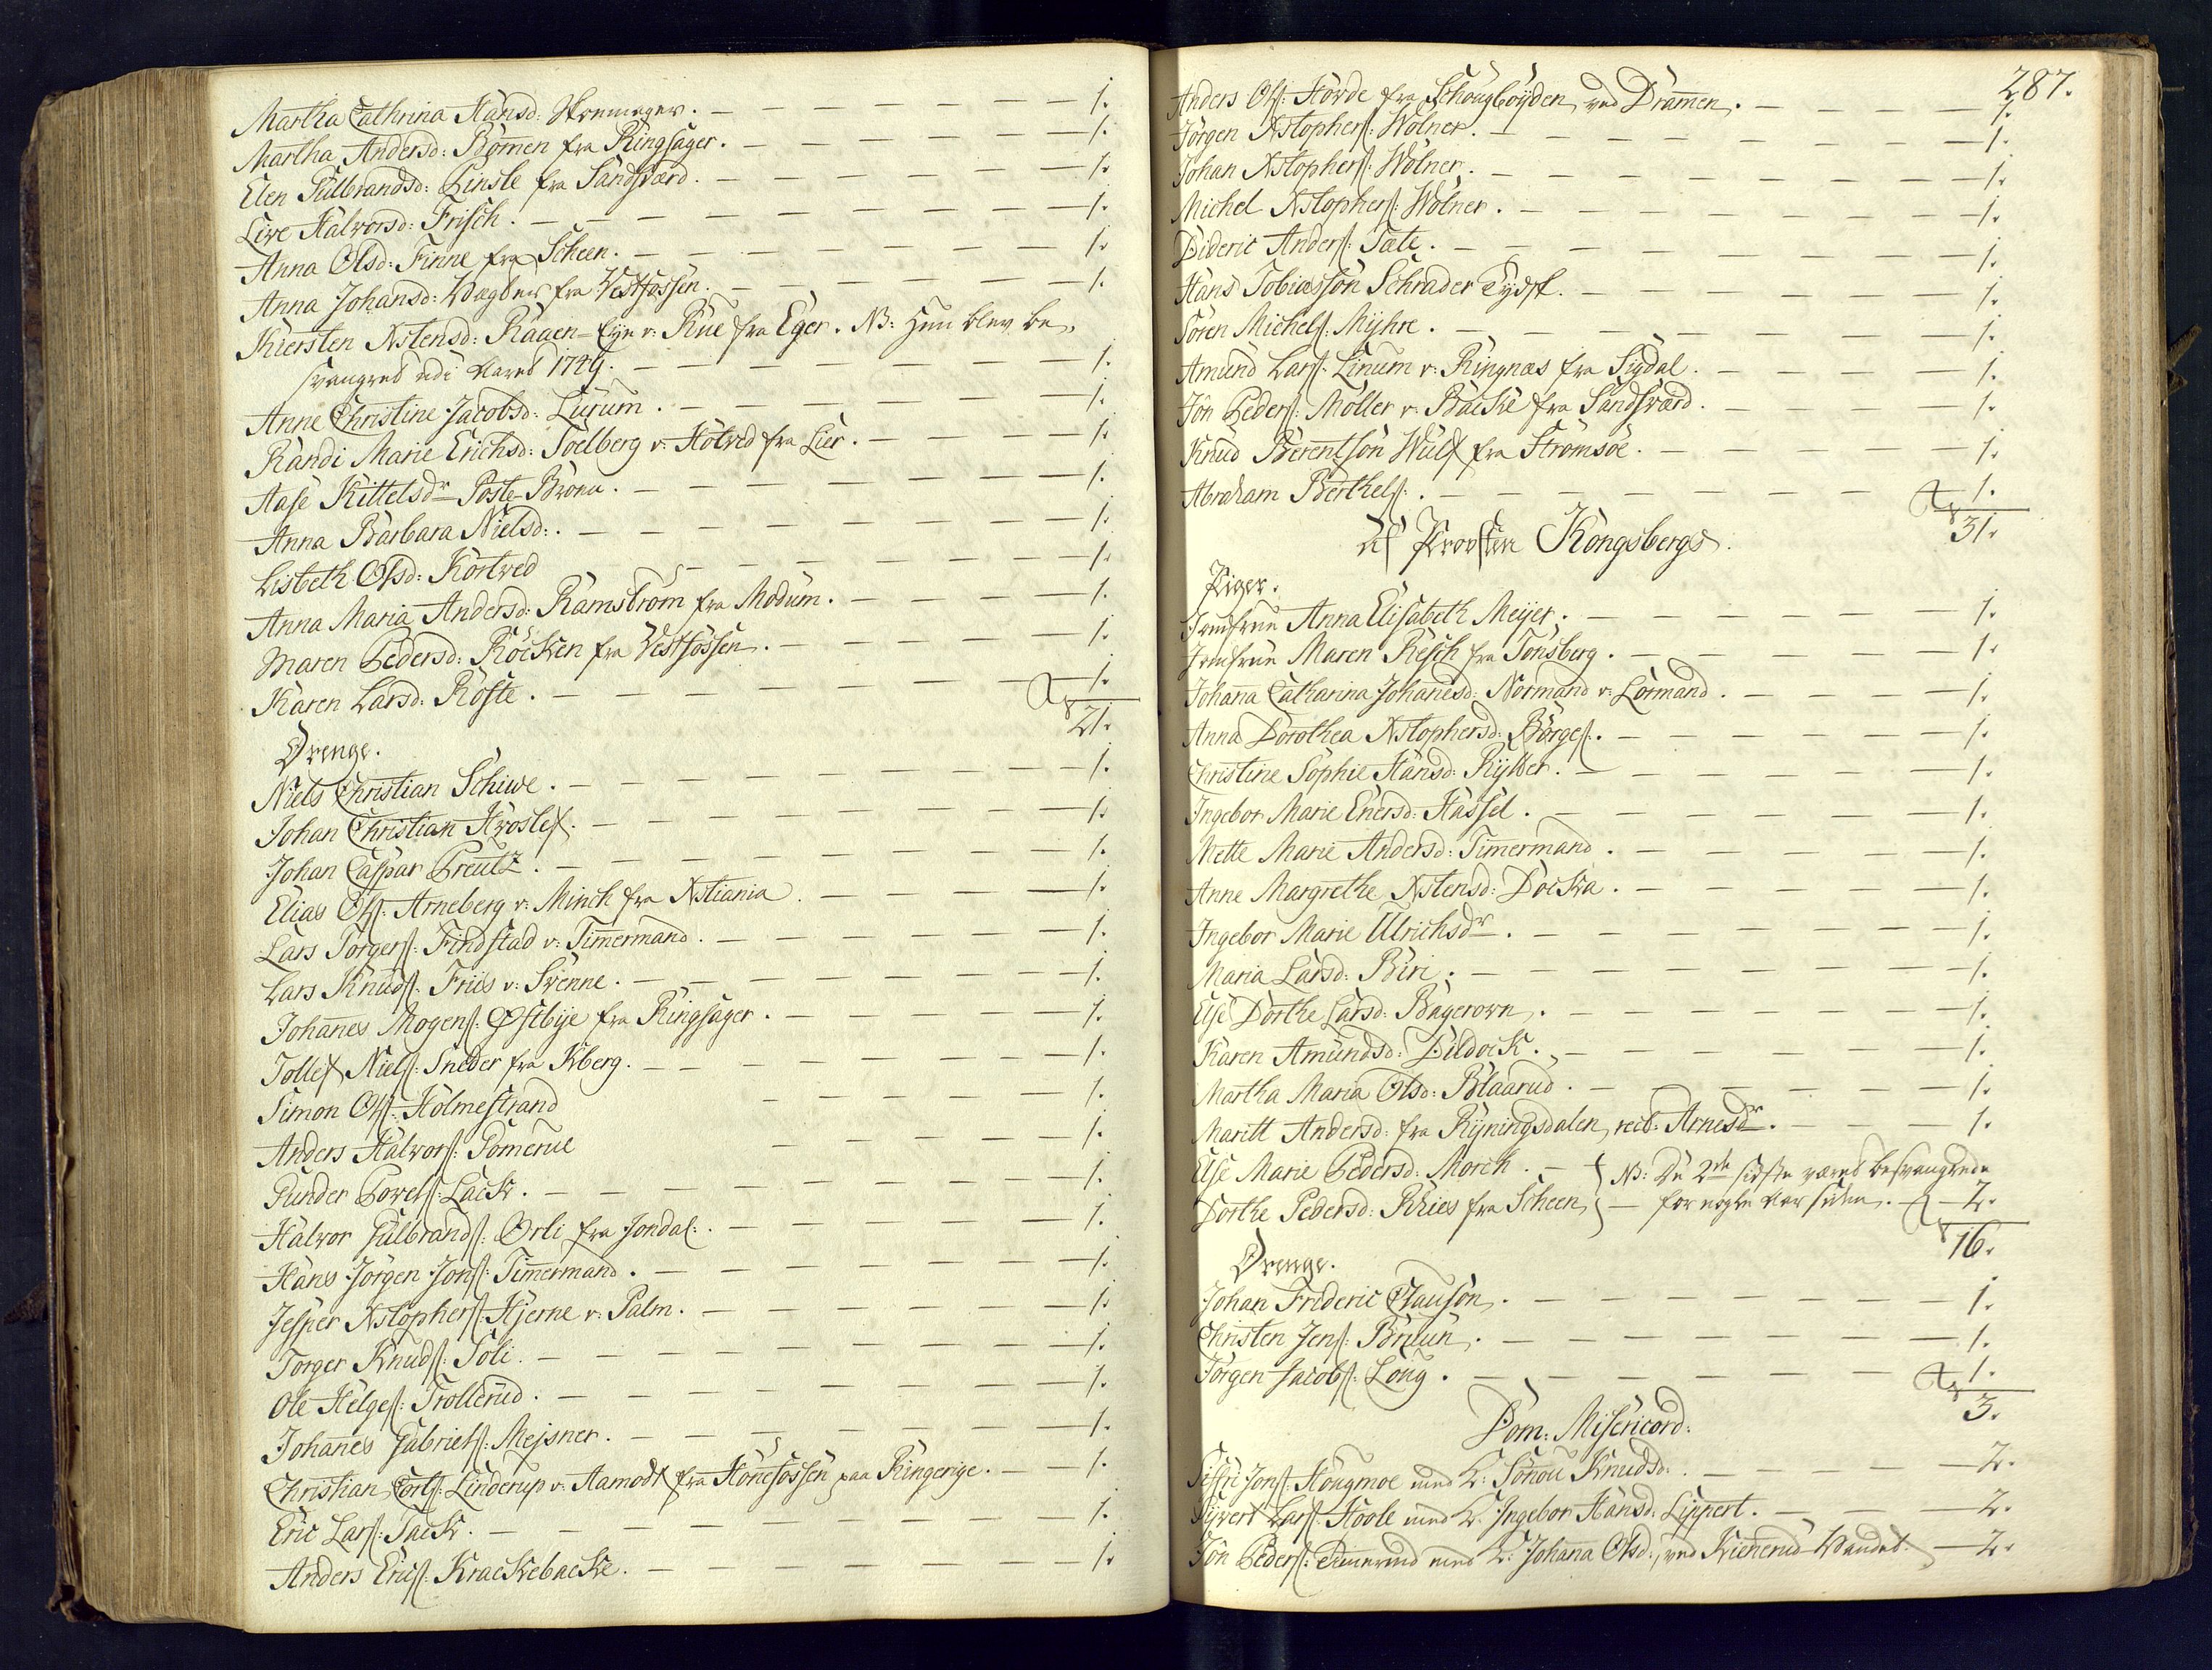 Martha Cathrina Hansd: Skomager. — 1.
Martha Andersd: Rømen fra Ringsager. — 1.
Elen Gulbrandsd: Linsle fra Sandsværd. — 1.
Live Halvorsd: Frisch. — 1.
Anna Olsd: Finne fra Scheen. — 1.
Anna Johansd: fra Vestfossen. — 1.
Kiersten Xstensd: Raaen v: Rue fra Eger. NB: Hun blev be-
svangred udi Aaret 1749. — 1.
Anne Christine Jacobsd: Lurum. — 1.
Randi Marie Erichsd: Toelberg v: Holtved fra Lier. — 1.
Aase Kittelsdr Poste-Broen. — 1.
Anna Barbara Nielsd:. — 1.
Lisbeth Olsd: Kortved — 1.
Anna Maria Andersd: Ramstrøm fra Modum. — 1.
Maren Pedersd: Røcken fra Vestfossen. — 1.
Karen Larsd: Roste. — 1.
21.
Drenge.
Niels Christian Schiwe. — 1.
Johan Christian — 1.
Johan Caspar Preutz. — 1.
Elias Ols: Arneberg v: Minch fra Xstiania. — 1.
Lars Torgers: Findstad v: Timermand. — 1.
Lars Knuds: Friis v: Svenne. — 1.
Johanes Mogens: Østbije fra Ringsager. — 1.
Tollef Niels: Sneder fra Kberg. — 1.
Simon Ols: Holmestrand — 1.
Anders Halvors: Gomerue — 1.
Gunder Povels: Lack. — 1.
Halvor Gulbrands: Orli fra Jondal:. — 1.
Hans Jørgen Jons: Timermand. — 1.
Jesper Xstophers: Hjerne v: Palm. — 1.
Torger Knuds: Toli. — 1.
Ole Helges: Trollerud. — 1.
Johanes Gabriels: Mejsner. — 1.
Christian Corts: Linderup v: Aamodt fra Hønefossen paa Ringerige. — 1.
Eric Lars: Tack. — 1.
Anders Erics: Krackebacke. — 1.
287.
Anders Ols: Hørde fra Schougbøyden ved Dramen. — 1.
Jørgen Xstophers: Wolner. — 1.
Johan Xstophers: Wolner. — 1.
Michel Xstophers: Wolner. — 1.
Dideric Anders: Tæte. — 1.
Hans Tobiassøn Schrader Tydsk. — 1.
Søren Michels: Myhre. — 1.
Amund Lars: Linum v: Ringnæs fra Sigdal. — 1.
Jon Peders: Møller v: Backe fra Sandsværd. — 1.
Knud Berentsøn Wulf fra Strømsøe. — 1.
Abraham Berthels:. — 1.
31.
Af Provsten Kongsbergs.
Piger.
Jomfrue Anna Elisabeth Meyer. — 1.
Jomfrue Maren Resch fra Tønsberg. — 1.
Johana Catharina Johanesd: Normand v: Lørmand. — 1.
Anna Dorothea Xstophersd: Børges:. — 1.
Christine Sophie Hansd: Rylber. — 1.
Ingebor Marie Enersd: Hassel. — 1.
Mette Marie Andersd: Timermand. — 1.
Anne Margrethe Xstensd: Docka. — 1.
Ingebor Marie Ulrichsdr. — 1.
Maria Larsd: Biri. — 1.
Else Dorthe Larsd: Bagerovn. — 1.
Karen Amundsd: Dildock. — 1.
Martha Maria Olsd: Blaarud. — 1.
Maritt Andersd: fra Ryningsdalen, rect: Arnesdr. — 1.
Else Marie Pedersd: Morch. — } NB: De 2de sidste vared besvangrede
Dorthe Pedersd: Rhies fra Scheen } — for nogle Aar siden. — 2.
16.
Drenge.
Johan Frideric Clausøn. — 1.
Christen Jens: Bruun. — 1.
Jørgen Jacobs: Long. — 1.
3.
Dom: Misericord:
Jons: Hougmoe med K: Knudsd:. — 2.
Syvert Lars: Hoole med K: Ingebor Hansd: Lippert. — 2.
Jon Peders: med K: Johana Olsd:, ved Kienerud Vandet. — 2.